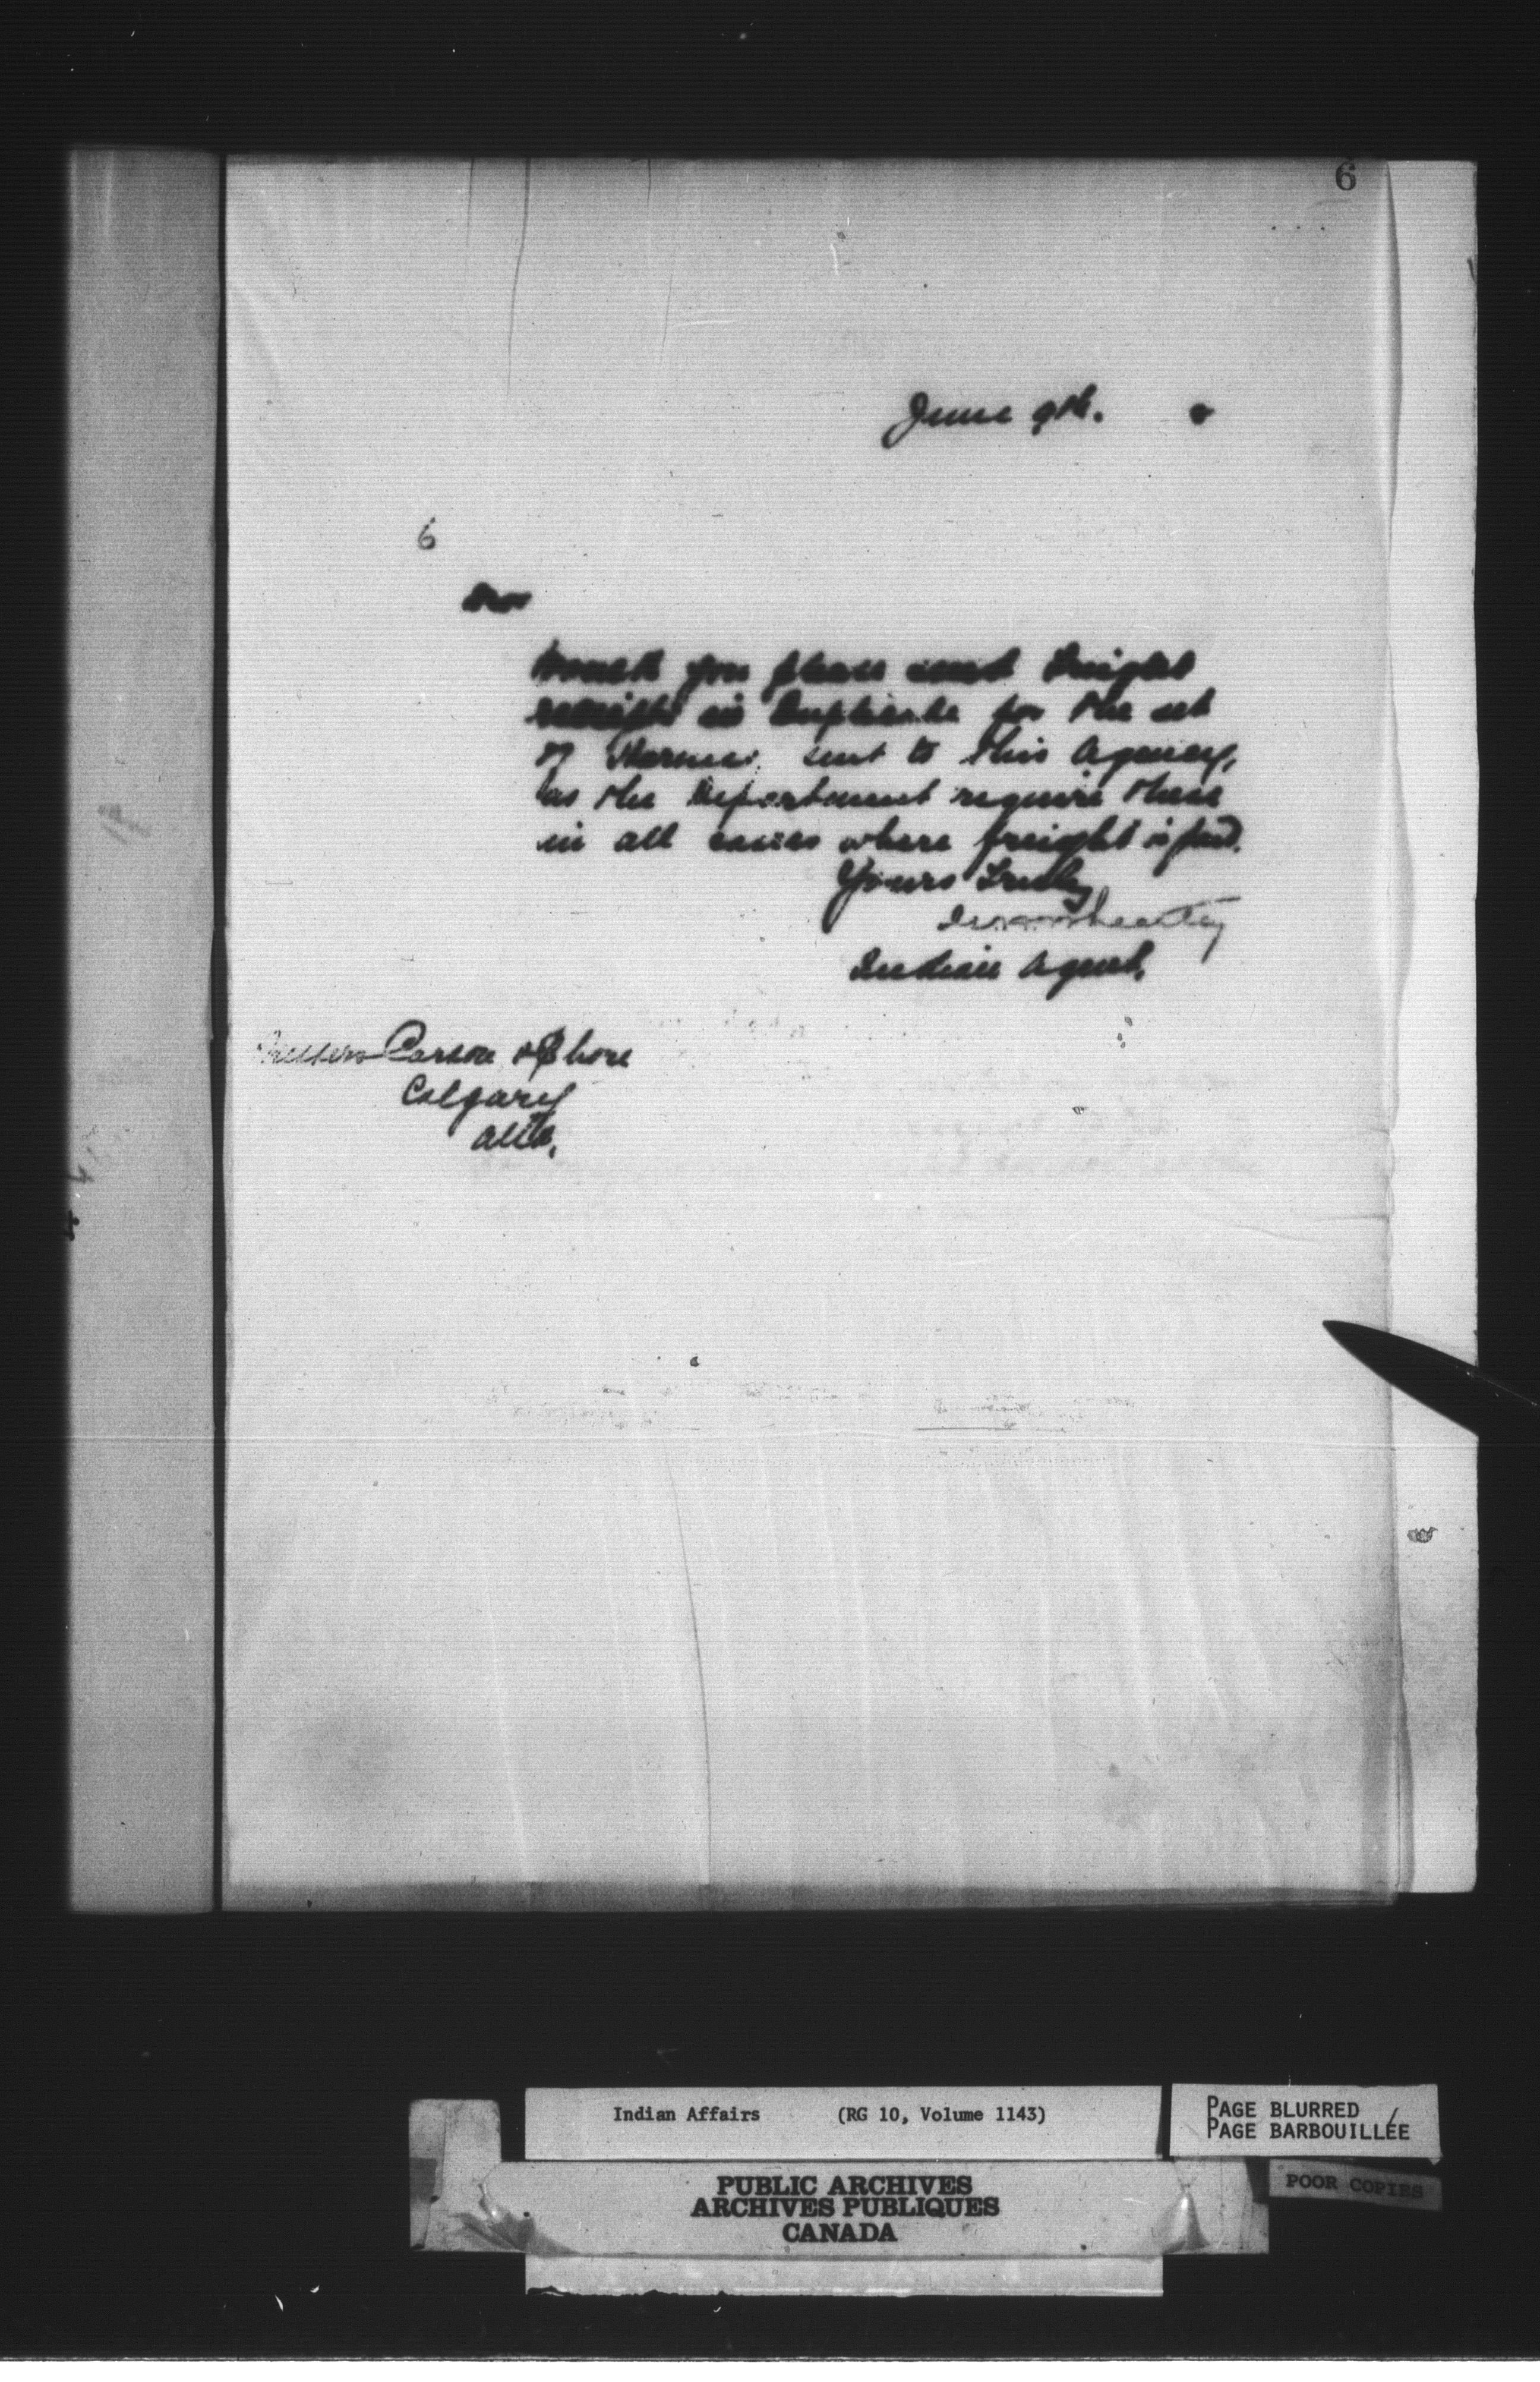 6
June 9th.
6
Sirs
Would you please send freight
receipts in Duplicate for the set
of Harness sent to this Agency,
as the Department require these
in all cases where freight is paid.
Yours Truly
Indian Agent.
Messrs Carson & Shore
Calgary
Alta.
Indian Affairs (RG 10, Volume 1143)
PAGE BLURRED
PAGE BARBOUILLÉE
POOR COPIES
PUBLIC ARCHIVES
ARCHIVES PUBLIQUES
CANADA